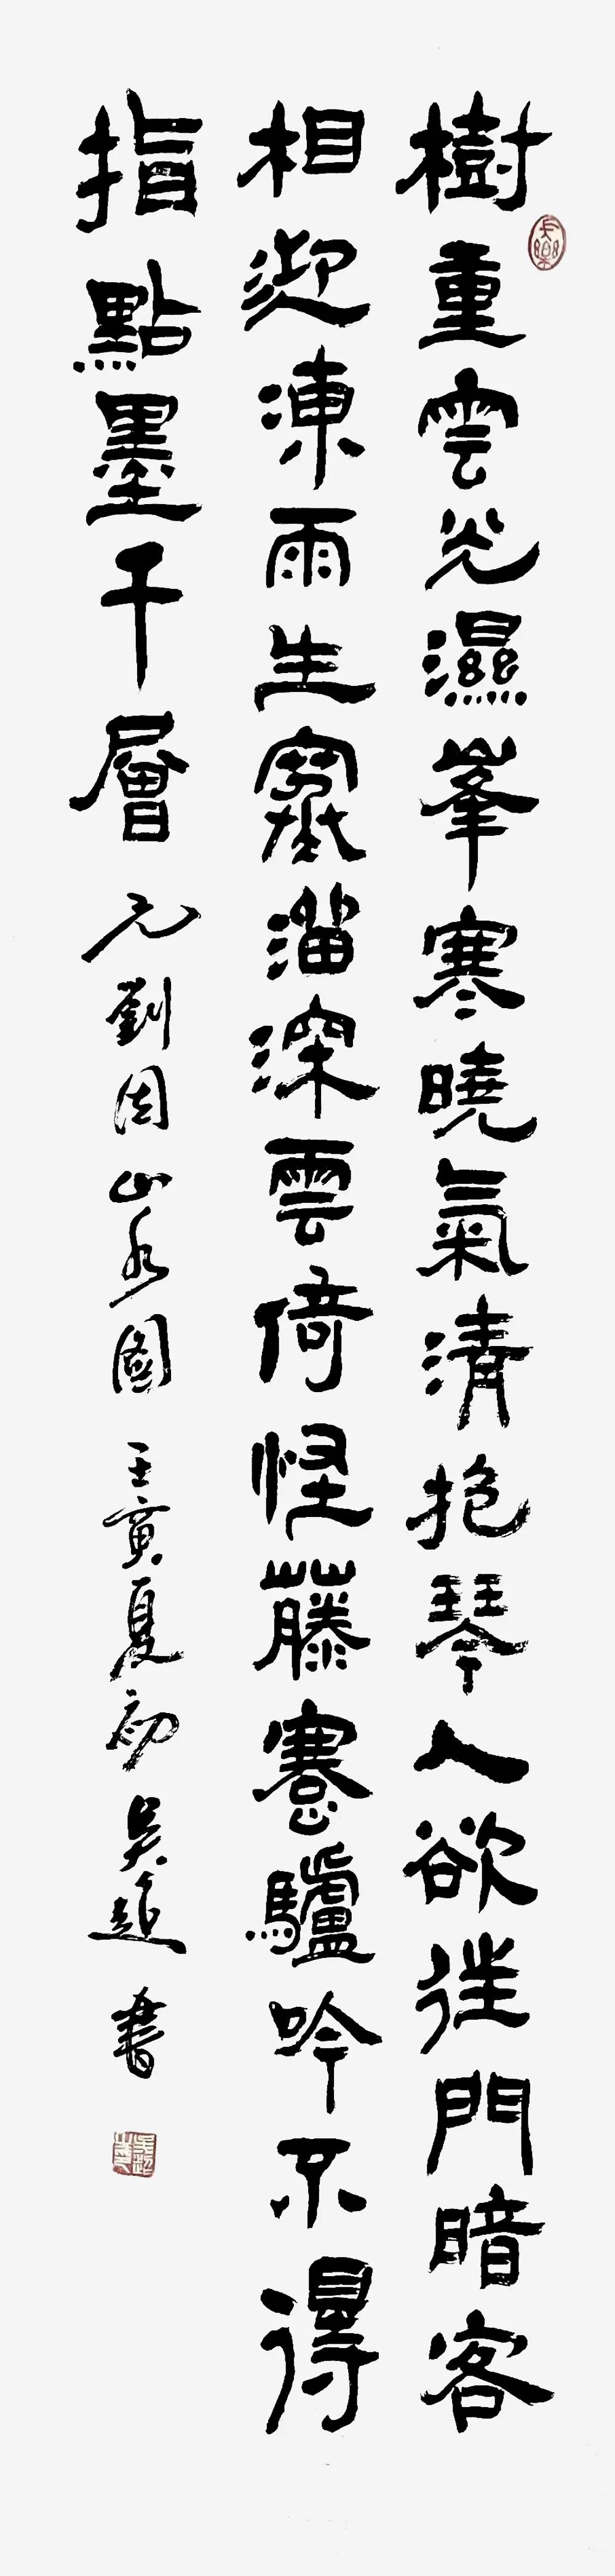 樹重雲光濕峯寒曉氣清抱琴人欲往門暗客
相迎凍雨生溜深雲倚怪藤蹇驢吟不得
指點墨千層 元劉因山水圖 壬寅夏初 吳超書
長樂